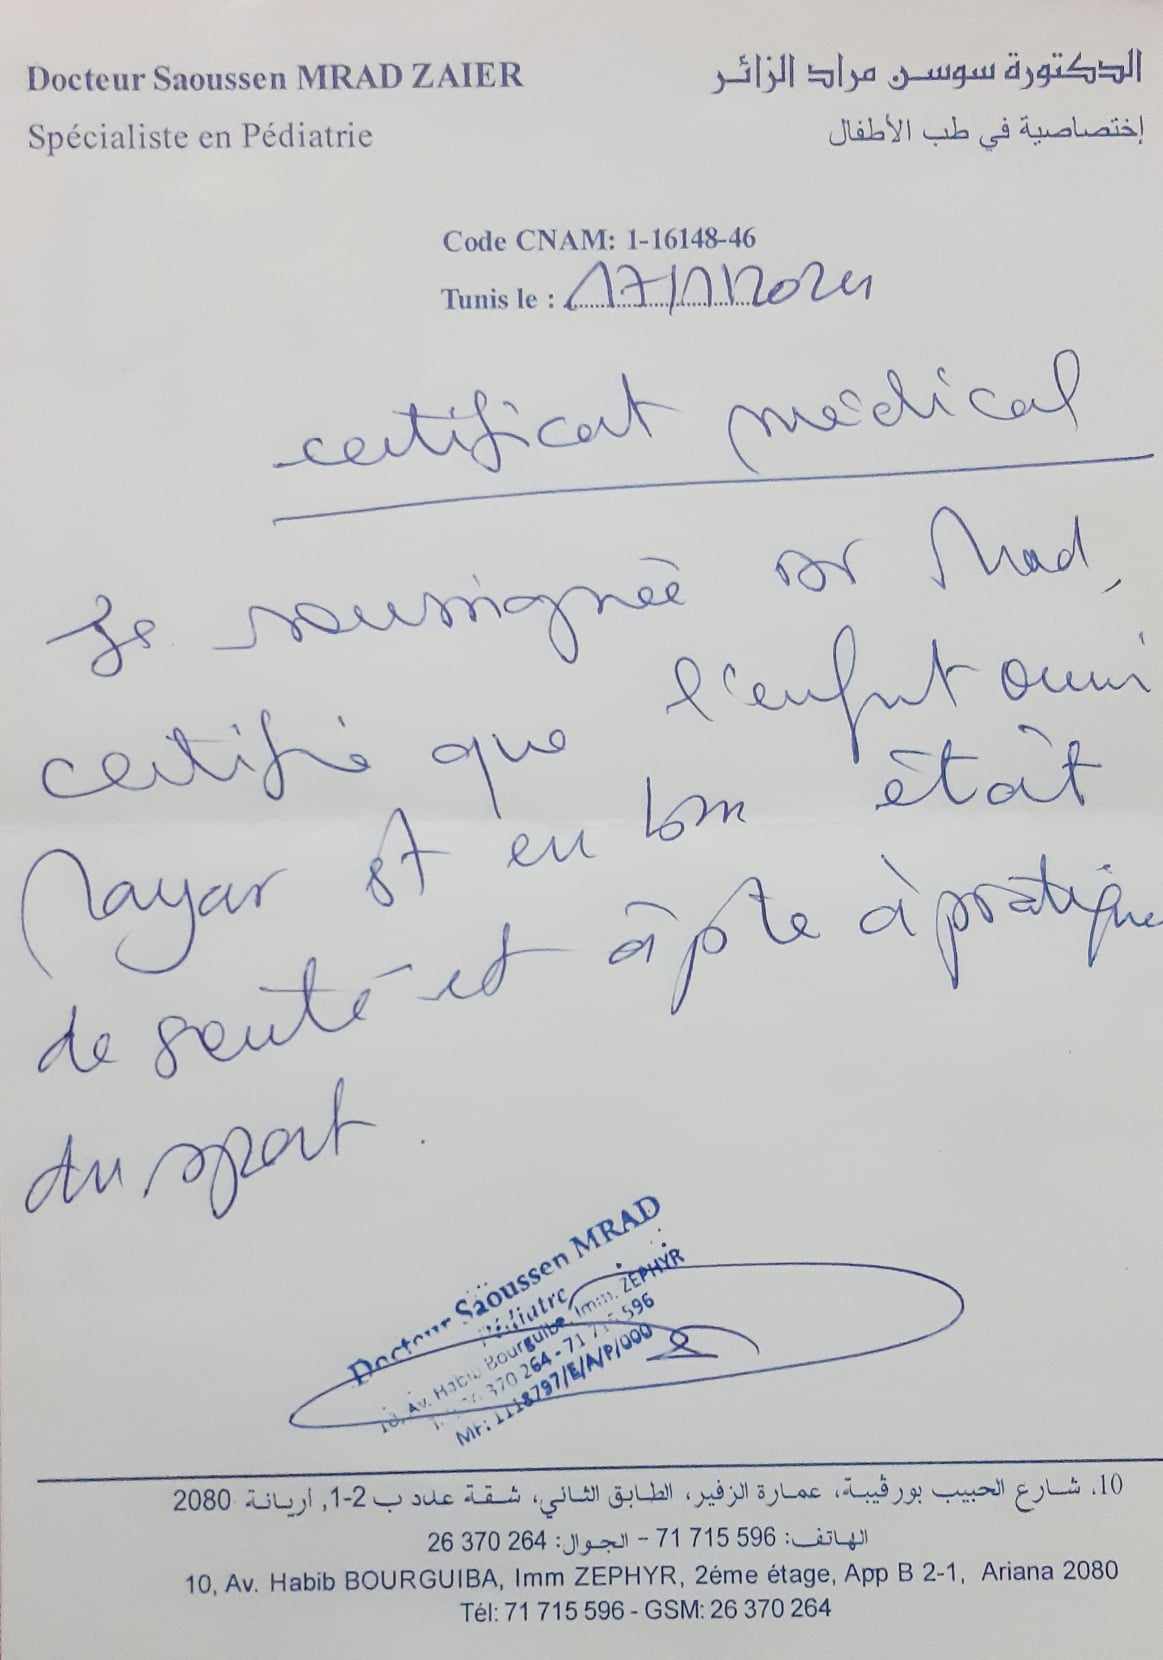 Docteur Saoussen MRAD ZAIER
الدكتورة سوسن مراد الزائر
Spécialiste en Pédiatrie
إختصاصية في طب الأطفال
Code CNAM: 1-16148-46
Tunis le : 17/1/2024
certificat médical
Je soussignée Dr Mrad,
certifie que l'enfant
Mayar est en bon état
de santé et apte à pratique
du sport.
Docteur Saoussen MRAD
Pédiatre
10, Av. Habib Bourguiba, Imm. ZEPHYR
370 264 - 71 715 596
MF: 1118797/E/A/P/000
10. شارع الحبيب بورقيبة، عمارة الزفير، الطابق الثاني، شقة عدد ب 2-1, أريانة 2080
الهاتف: 596 715 71 - الجوال: 264 370 26
10, Av. Habib BOURGUIBA, Imm ZEPHYR, 2éme étage, App B 2-1, Ariana 2080
Tél: 71 715 596 - GSM: 26 370 264